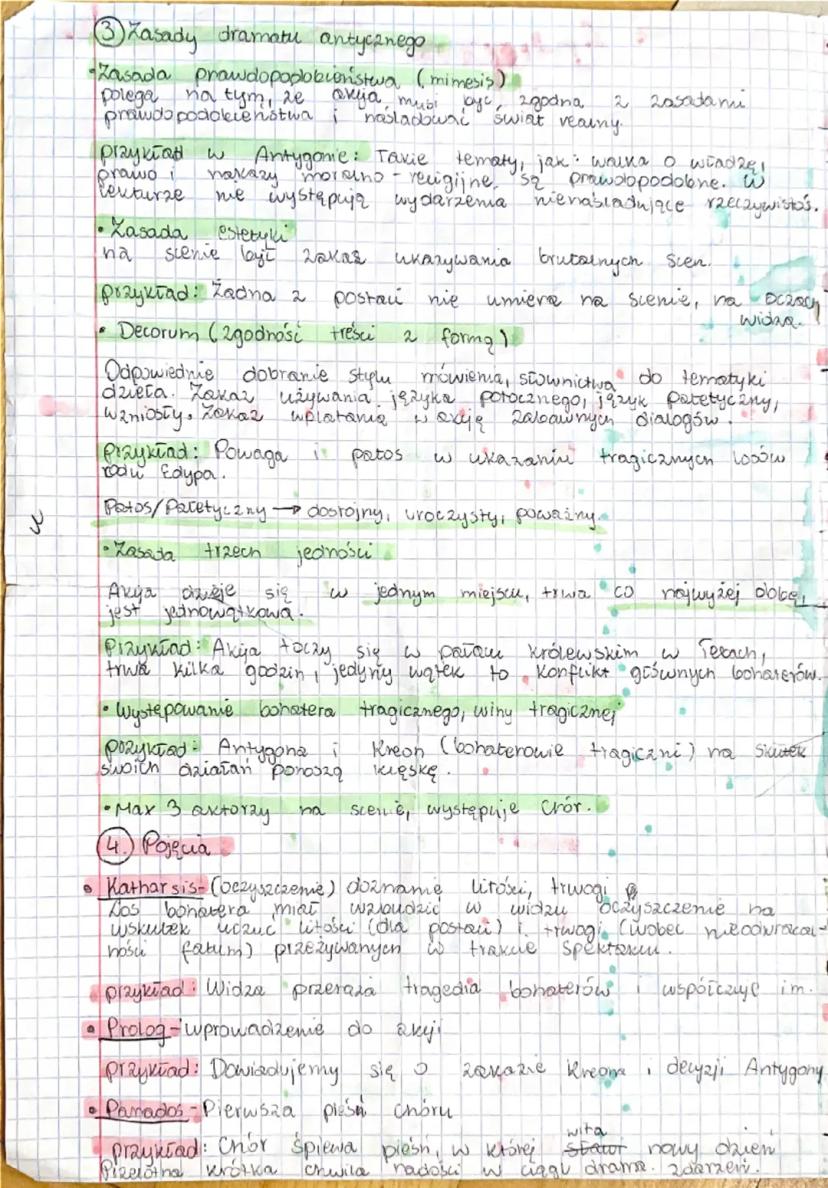 ③ Zasady dramatu antycznego
• Zasada prawdopodobieństwa (mimesis)
polega na tym, że akcja musi być zgodna z zasadami
prawdopodobieństwa i naśladować świat realny.
przykład w Antygonie: Takie tematy, jak: walka o władzę,
prawo i nakazy moralno-religijne, są prawdopodobne. W
lekturze nie występują wydarzenia nienaśladujące rzeczywistoś.
• Zasada estetyki
na scenie był zakaz ukazywania brutalnych scen.
przykład: Żadna z postaci nie umiera na scenie, na oczach
widza.
• Decorum (zgodność treści z formą)
Odpowiednie dobranie stylu mówienia, słownictwa do tematyki
dzieła. Zakaz używania języka potocznego, język patetyczny,
wzniosły. Zakaz wplatania w akcję zabawnych dialogów.
przykład: Powaga i patos w ukazaniu tragicznych losów
rodu Edypa.
Patos/Patetyczny → dostojny, uroczysty, poważny.
• Zasada trzech jedności
Akcja dzieje się w jednym miejscu, trwa co najwyżej dobę,
jest jednowątkowa.
Przykład: Akcja toczy się w pałacu królewskim w Tebach,
trwa kilka godzin, jedyny wątek to konflikt głównych bohaterów.
• Występowanie bohatera tragicznego, winy tragicznej
przykład: Antygona i Kreon (bohaterowie tragiczni) na skutek
swoich działań ponoszą klęskę.
• Max 3 aktorzy na scenie, występuje Chór.
④ Pojęcia
• Katharsis-(oczyszczenie) doznanie litości, trwogi
Los bohatera miał wzbudzić w widzu oczyszczenie na
wskutek uczuć litości (dla postaci) i trwogi (wobec nieodwracal-
ności fatum) przeżywanych w trakcie spektaklu.
przykład: Widza przeraża tragedia bohaterów i współczuje im.
• Prolog-wprowadzenie do akcji
przykład: Dowiadujemy się o zakazie Kreona i decyzji Antygony
• Parados-Pierwsza pieśń chóru
wita
przykład: Chór śpiewa pieśń, w której nowy dzień
Przelotna krótka chwila radości w ciągu drama. zdarzeń.